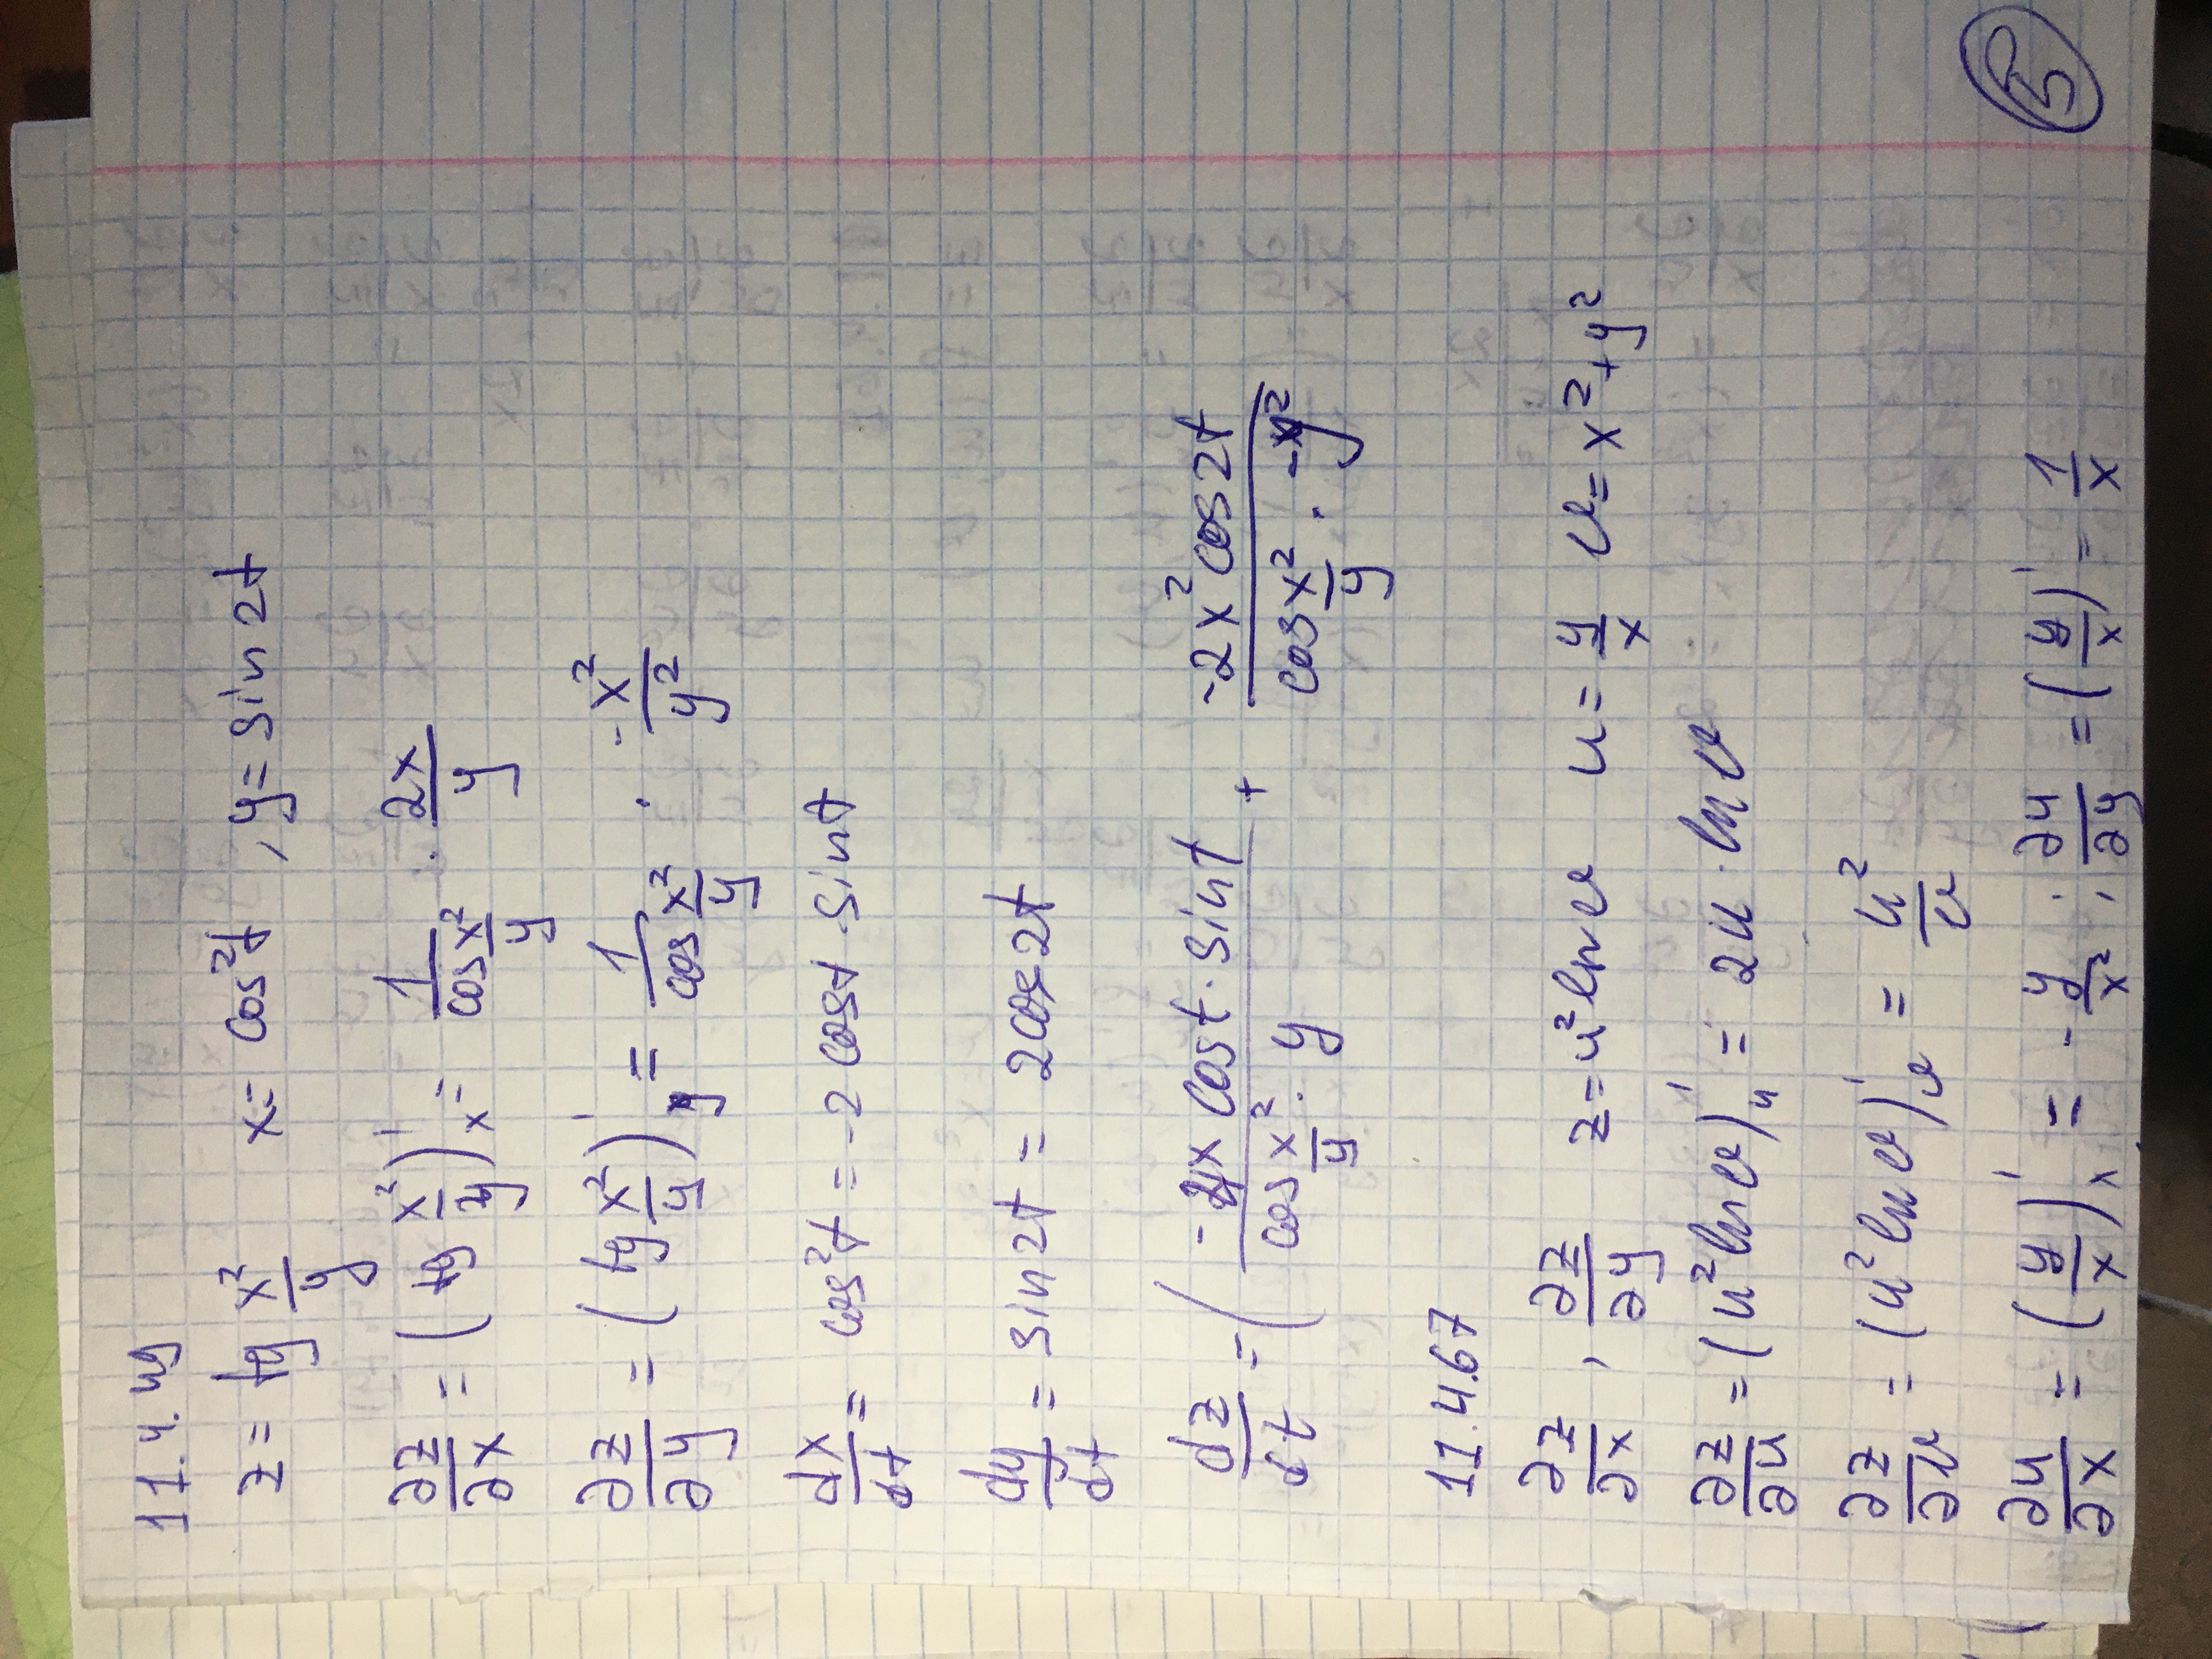 11.4.49
z = tg x²/y   x = cos²t , y = sin2t
∂z/∂x = (tg x²/y)'x = 1/(cos x²/y) · 2x/y
∂z/∂y = (tg x²/y)'y = 1/(cos x²/y) · -x²/y²
dx/dt = cos²t = -2cost·sint
dy/dt = sin2t = 2cos2t
dz/dt = ( (-4x cost·sint)/(cos x²/y · y) + (-2x²cos2t)/(cos x²/y · -y²)
11.4.67
∂z/∂x , ∂z/∂y   z = u²lnv   u = y/x   v = x²+y²
∂z/∂u = (u²lnv)'u = 2u·lnv
∂z/∂v = (u²lnv)'v = u²/v
∂u/∂x = (y/x)'x = -y/x² ; ∂u/∂y = (y/x)' = 1/x
5